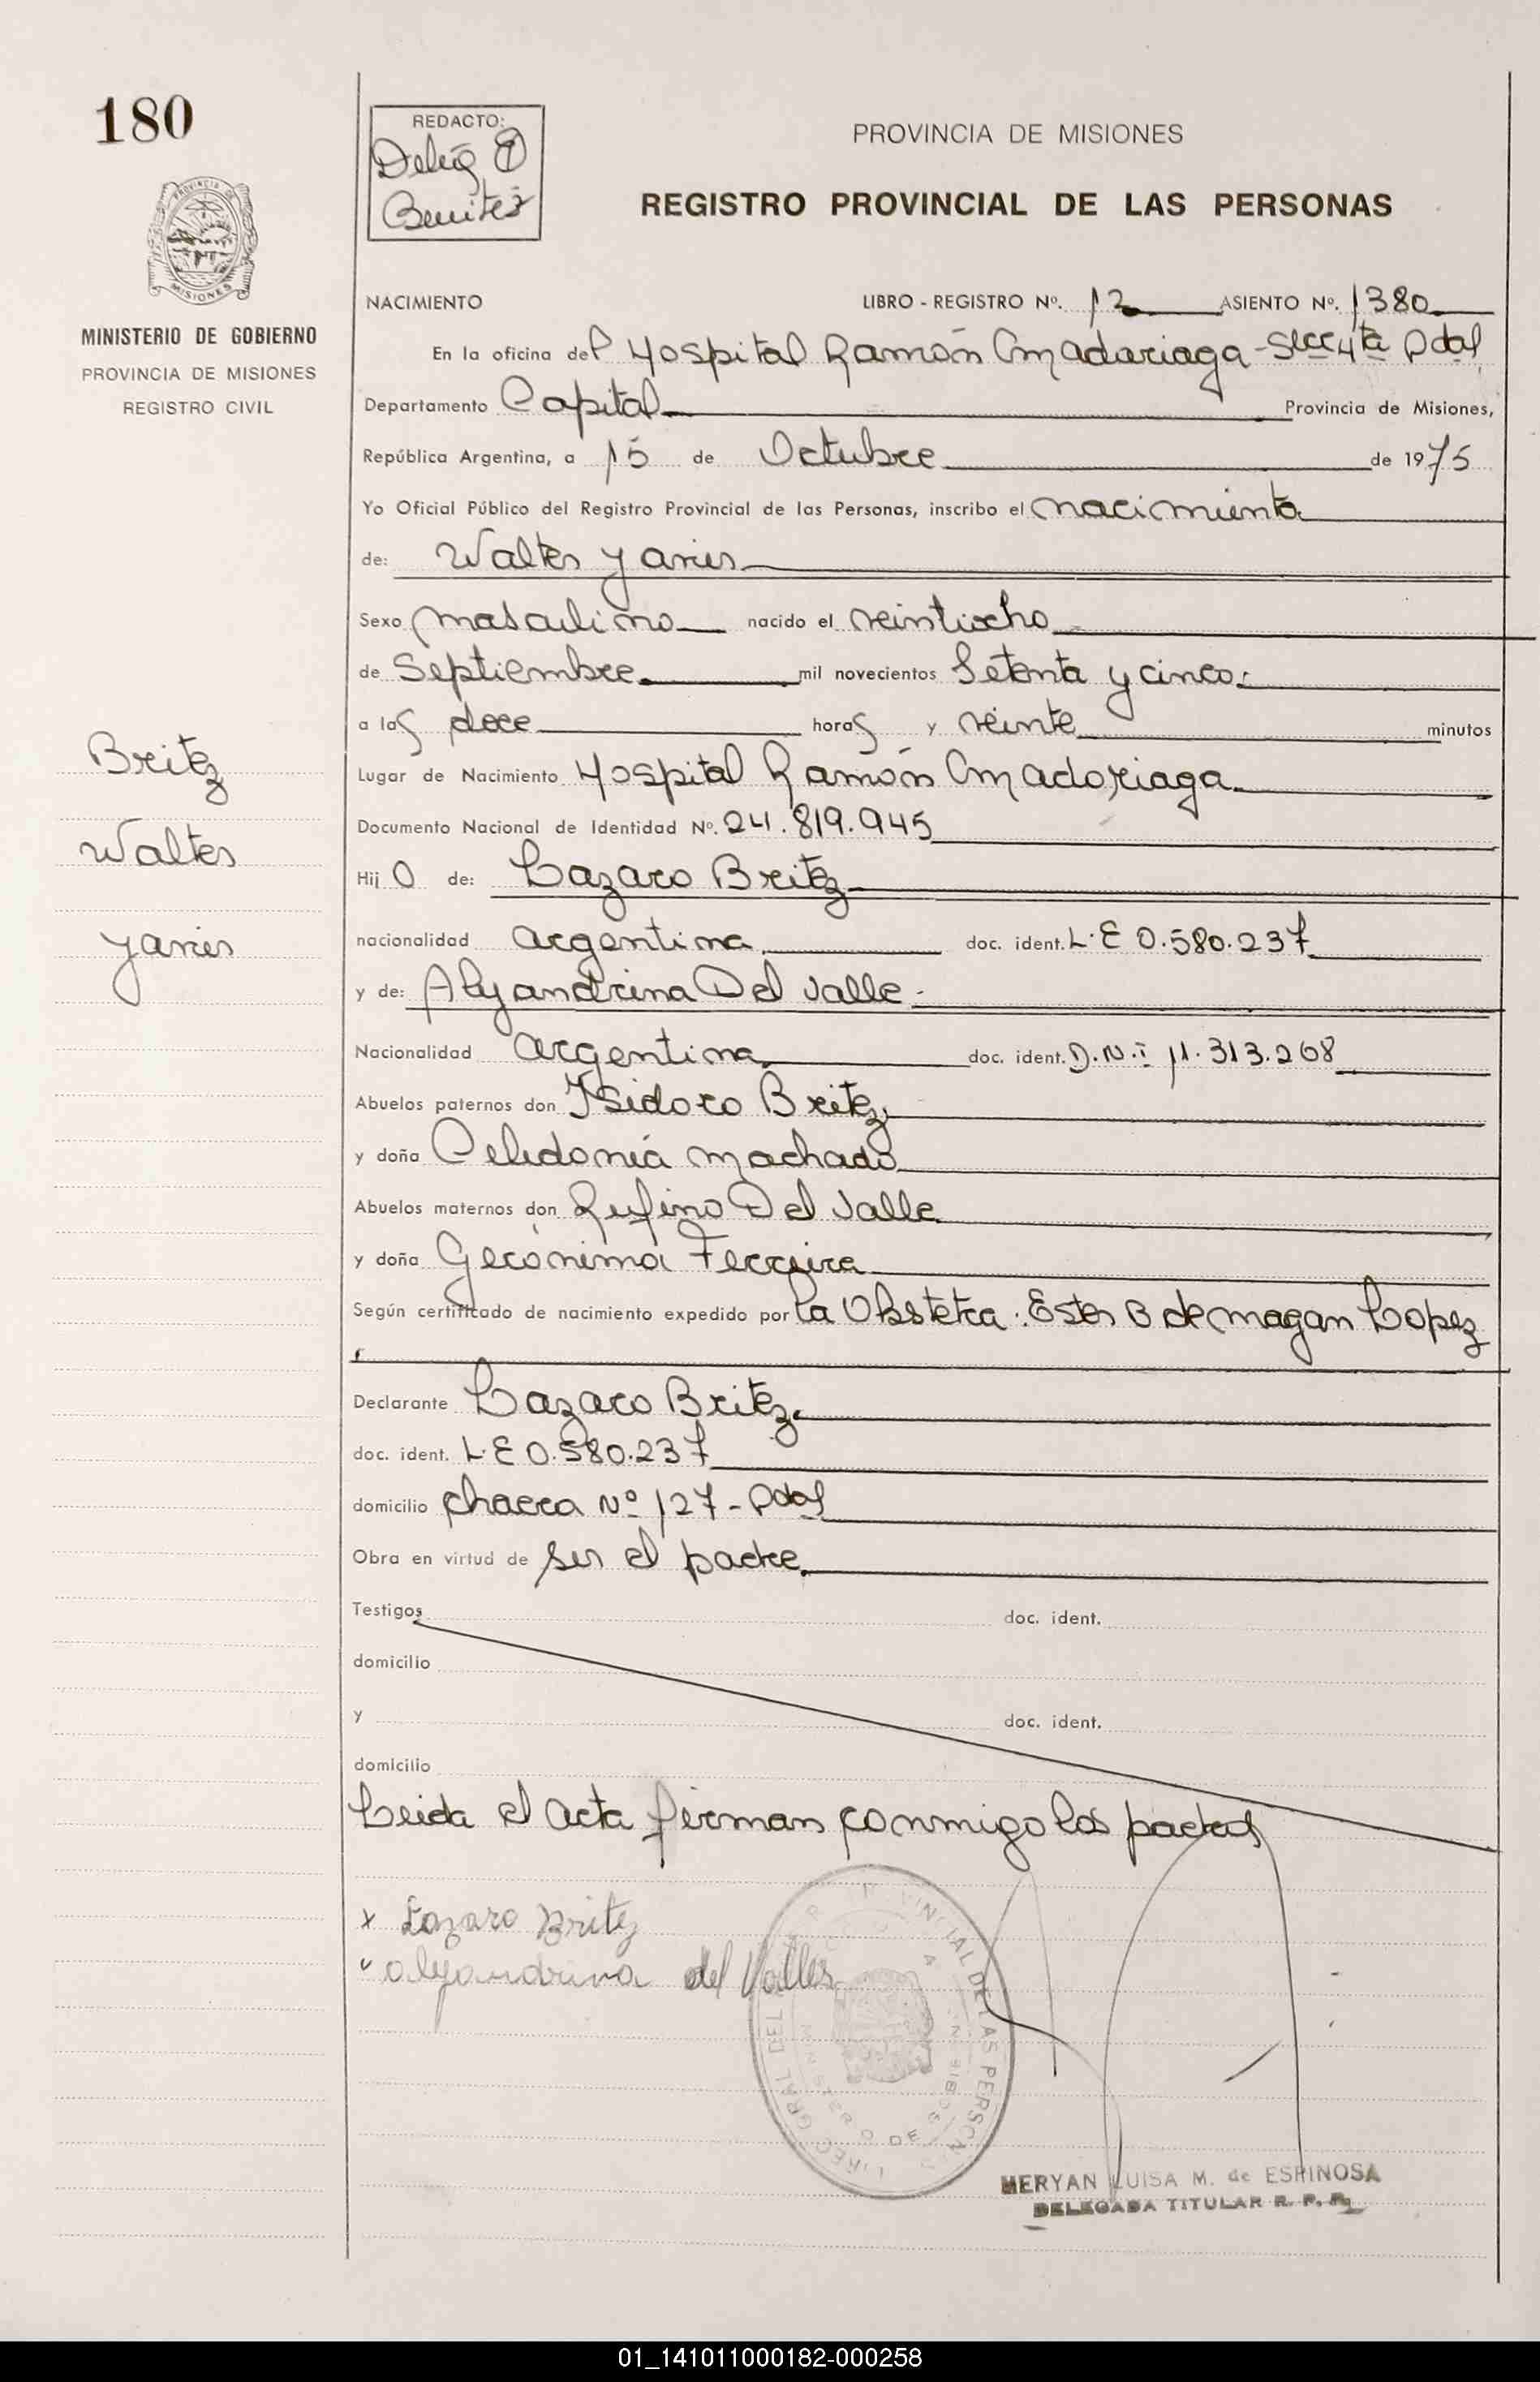 180
REDACTO:
Deleg
Benitez
PROVINCIA DE MISIONES
REGISTRO PROVINCIAL DE LAS PERSONAS
MISIONES
MINISTERIO DE GOBIERNO
PROVINCIA DE MISIONES
REGISTRO CIVIL
NACIMIENTO LIBRO - REGISTRO Nº. 12 ASIENTO Nº. 1380
En la oficina del Hospital Ramón Madariaga - Secc 4ta Pdas
Departamento Capital Provincia de Misiones,
República Argentina, a 15 de Octubre de 1975
Yo Oficial Público del Registro Provincial de las Personas, inscribo el nacimiento
de: Walter Javier
Sexo masculino nacido el veintiocho
de Septiembre mil novecientos Setenta y cinco
a las doce horas y veinte minutos
Britez
Walter
Javier
Lugar de Nacimiento Hospital Ramón Madariaga
Documento Nacional de Identidad Nº. 24.819.945
Hijo de: Lazaro Britez
nacionalidad argentina doc. ident. L.E 0.580.237
y de: Alejandrina Del Valle
Nacionalidad argentina doc. ident. D.N.I 11.313.268
Abuelos paternos don Isidoro Britez
y doña Celidonia Machado
Abuelos maternos don Rufino Del Valle
y doña Gerónima Ferreira
Según certificado de nacimiento expedido por la Obstetra: Ester B de Magan Lopez
Declarante Lazaro Britez
doc. ident. L.E 0.580.237
domicilio Chacra Nº 127 - Pdas
Obra en virtud de ser el padre
Testigos doc. ident.
domicilio
y doc. ident.
domicilio
Leida el acta firman conmigo los padres
x Lazaro Britez
" alejandrina del Valle
MERYAN LUISA M. de ESPINOSA
DELEGADA TITULAR R. P. P.
01_141011000182-000258